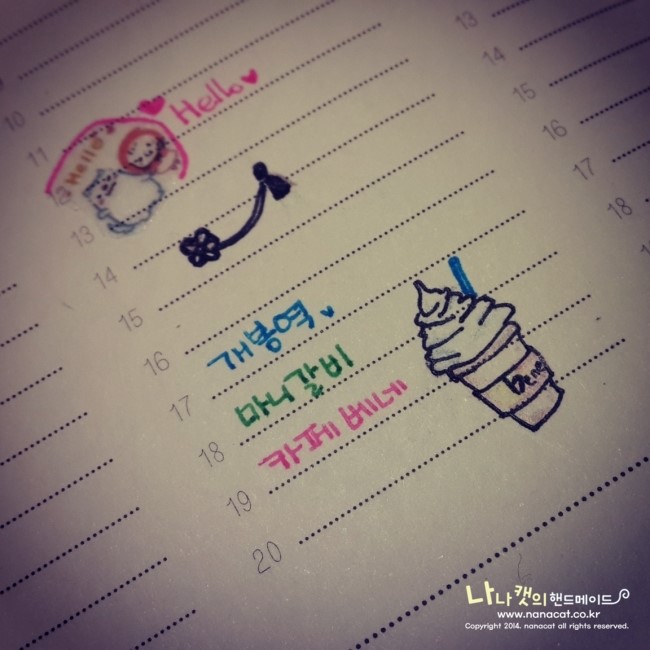 10
11
12
13
14
15
16
17
18
19
20
13
14
15
16
17
18
Hello
Hello
개봉역
마니갈비
카페베네
bene
나나캣의 핸드메이드
www.nanacat.co.kr
Copyright 2014. nanacat all rights reserved.